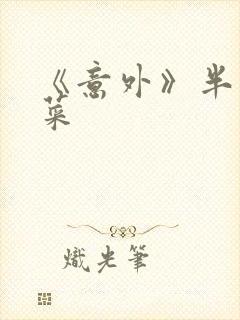 《意外》半
菜
熾光筆